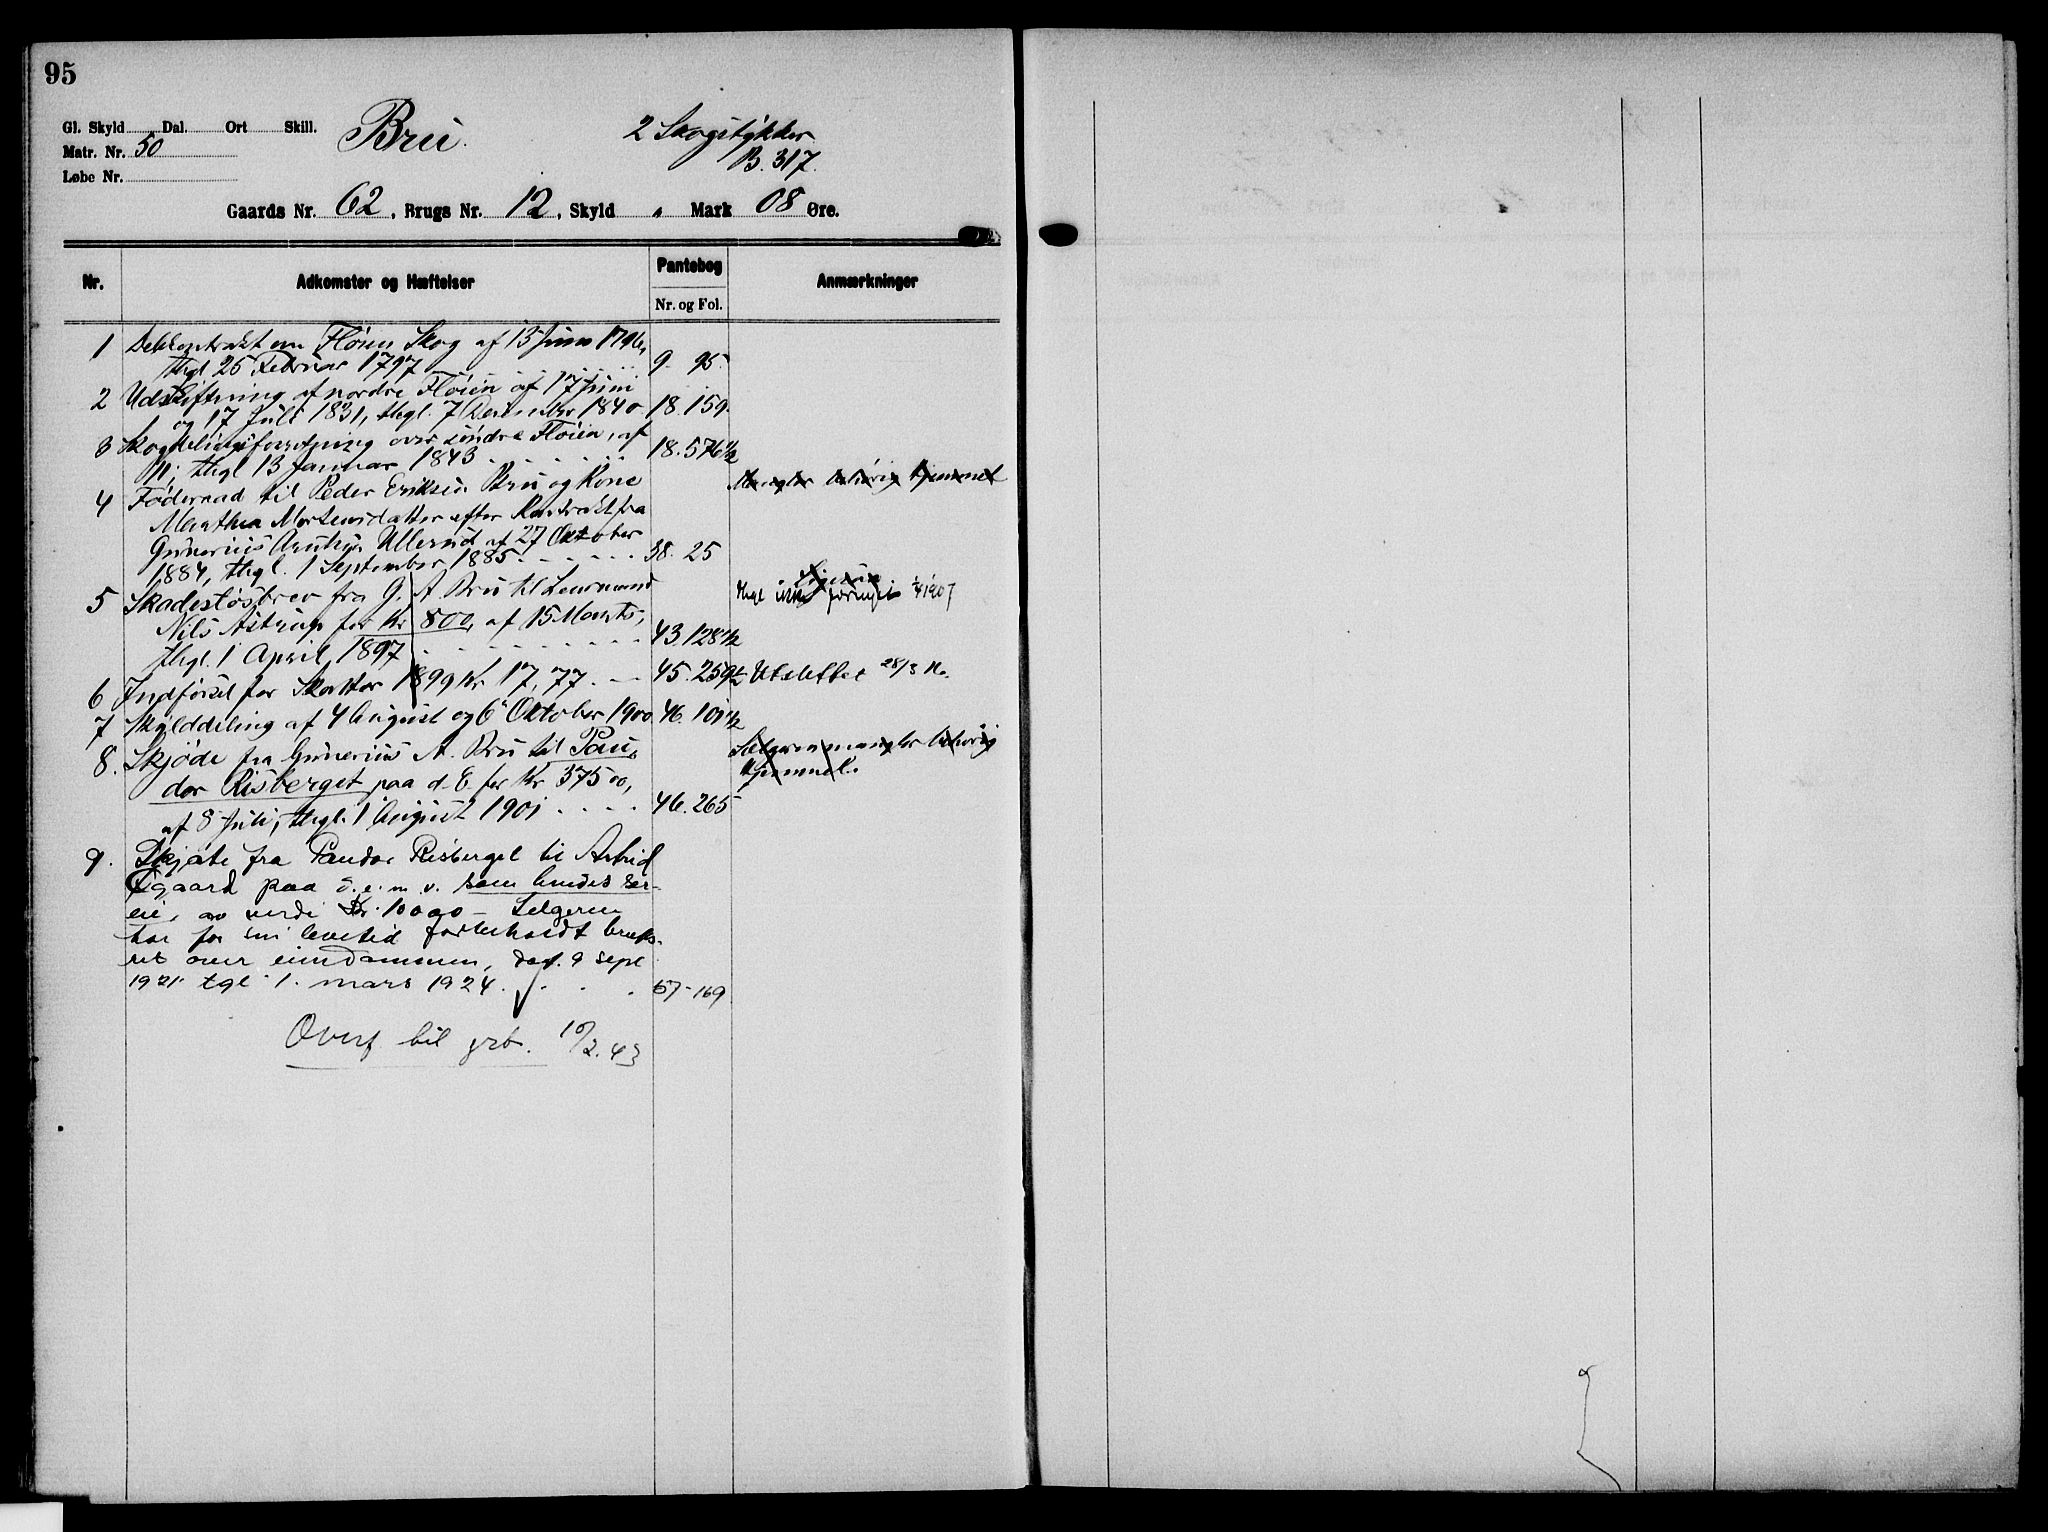 95
Gl. Skyld Dal. Ort Skill.
Bru.
2 Skogstykker
Matr. Nr. 50
B. 317.
Løbe Nr.
Gaards Nr. 62, Brugs Nr. 12, Skyld " Mark 08 Øre.
Nr. Adkomster og Hæftelser Pantebog Anmærkninger
Nr. og Fol.
1 Delekontrakt om Fløien Skog af 13 Juni 1796,
thgl 25 Februar 1797 9. 95.
2 Udskiftning af nordre Fløien af 17 Juni
og 17 Juli 1831, thgl. 7 December 1840 18. 159.
3 Skogdelingsforretning over søndre Fløien, af
thgl 13 Januar 1843 18. 576½
4 Føderaad til Peder Eriksen Bru og Kone Mangler behørig hjemmel
Marthea Mortensdatter efter Kontrakt fra
Gunerius Ullerud af 27 Oktober
1884, thgl. 1 September 1885 38. 25
5 Skadesløsbrev fra G. A. Bru til Lensmand thgl ikke 1907
Nils Astrup for Kr 800, af 15 Marts,
thgl. 1 April 1897 43. 128½
6 Indførsel for Skatter 1899 Kr 17,77. 45. 259½ Utslettet 28/3
7 Skylddeling af 4 August og 6 Oktober 1900 46. 101½
8. Skjøde fra Gunerius A. Bru til Pau- Sælgeren mangler behørig
dor Risberget paa d. E for Kr 37500, hjemmel.
af 8 Juli, thgl. 1 August 1901 46. 265
9. Skjøte fra Paudor Risberget til Astrid
paa d. e. m. v. som hendes sær-
eie, av verdi Kr. 10000 – Selgeren
har for sin levetid forbeholdt bruks-
ret over eiendommen, dat. 9 sept
1921. tgl. 1. mars 1924. 57-169
Overf. til grb. 10/2.43